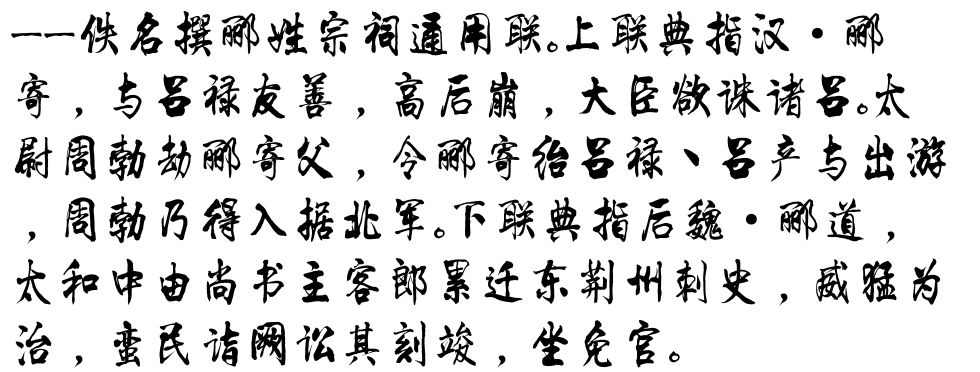 ——佚名撰郦姓宗祠通用联。上联典指汉·郦
寄，与吕禄友善，高后崩，大臣欲诛诸吕。太
尉周勃劫郦寄父，令郦寄绐吕禄、吕产与出游
，周勃乃得入据北军。下联典指后魏·郦道，
太和中由尚书主客郎累迁东荆州刺史，威猛为
治，蛮民诣阙讼其刻竣，坐免官。